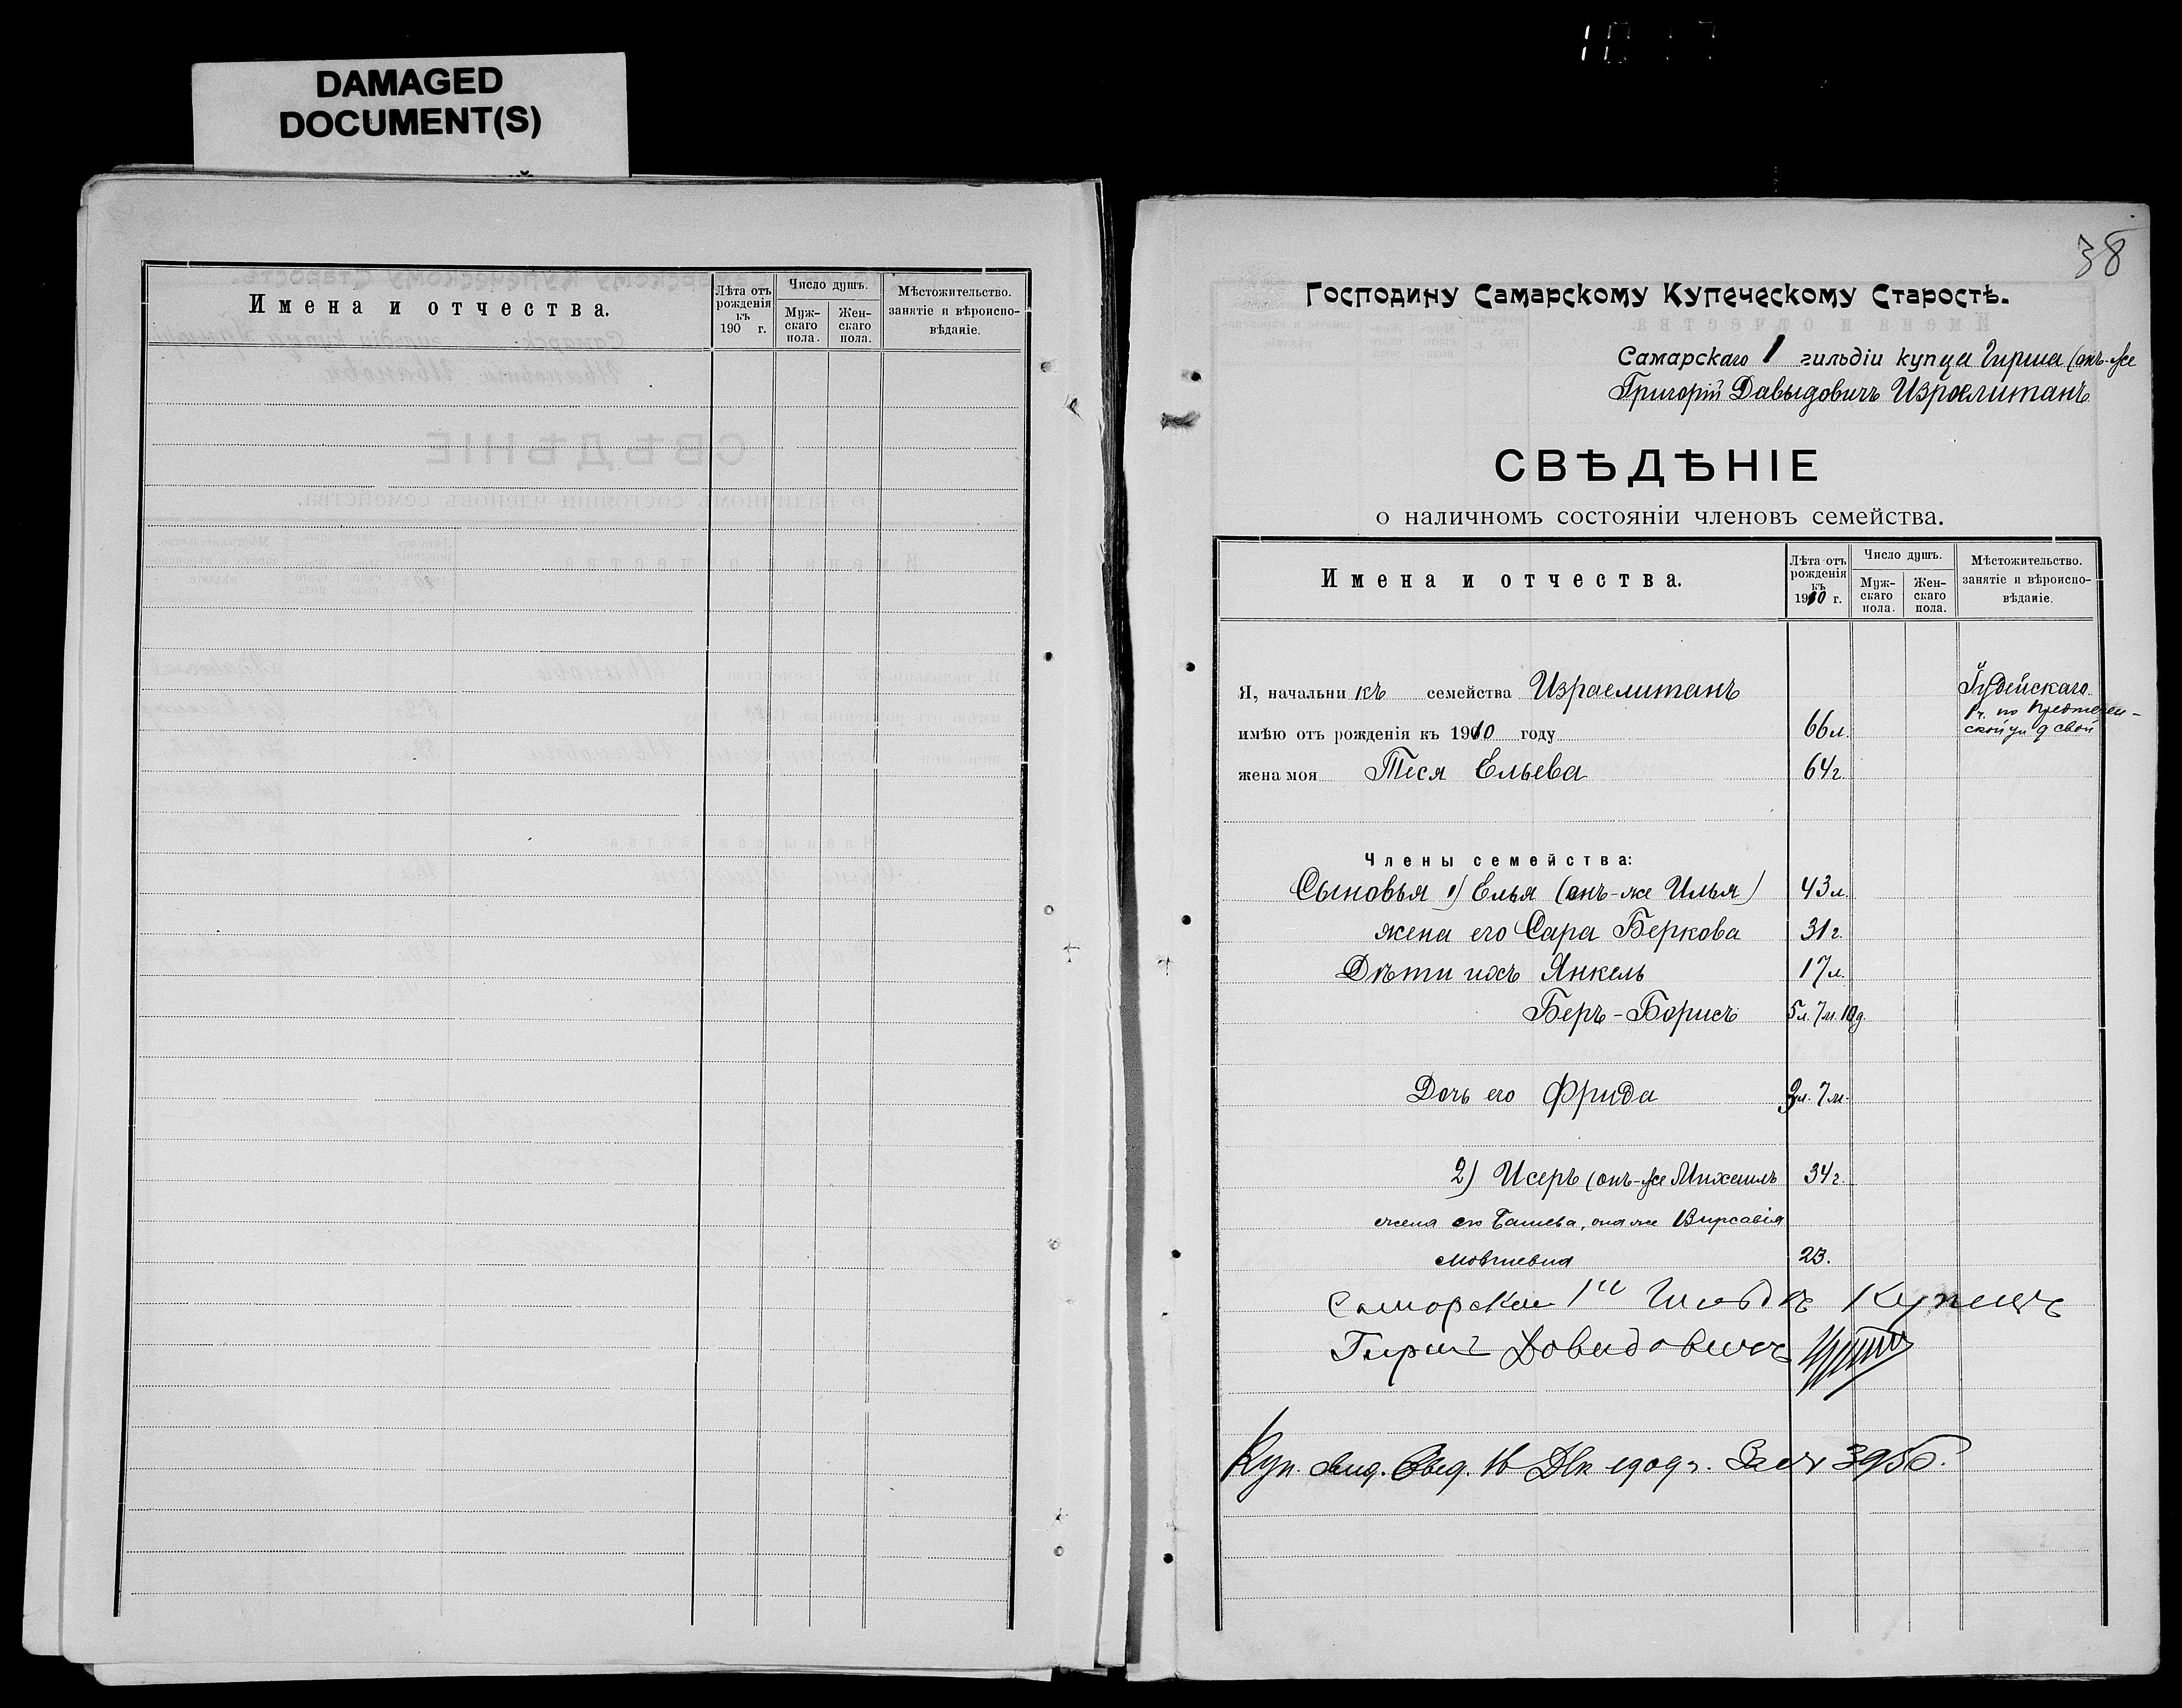 DAMAGED
DOCUMENT(S)
Имена и отчества.
Лѣта отъ рожденія къ 190 г.
Число душъ.
Муж-скаго пола.
Жен-скаго пола.
Мѣстожительство. занятіе и вѣроиспо-вѣданіе.
38
Господину Самарскому Купеческому Старостѣ.
Самарскаго 1 гильдіи купца Гирша (онъ-же
Григорій Давыдовичъ Израелитанъ
СВѢДѢНІЕ
о наличномъ состояніи членовъ семейства.
Имена и отчества.
Лѣта отъ рожденія къ 1910 г.
Число душъ.
Муж-скаго пола.
Жен-скаго пола.
Мѣстожительство. занятіе и вѣроиспо-вѣданіе.
Я, начальникъ семейства Израелитанъ
Іудейскаго
имѣю отъ рожденія къ 1910 году 66 л.
по Предтечен-
ской ул д свой
жена моя Теся Ельева 64 г.
Члены семейства:
Сыновья 1) Елья (онъ-же Илья) 43 л.
жена его Сара Беркова 31 г.
Дѣти ихъ Янкель 17 л.
Беръ-Борисъ 5 л. 7 м. 10 д.
Дочь его Фрида 3 л. 7 м.
2) Исеръ (онъ-же Михаилъ 34 г.
жена его Башева, она же Вирсавія
Мовшевна 23.
Самарскаи 1й Гильди Купецъ
Гиршъ Довидовичъ
Куп. 16 Дек 1909 г. За № 3956.